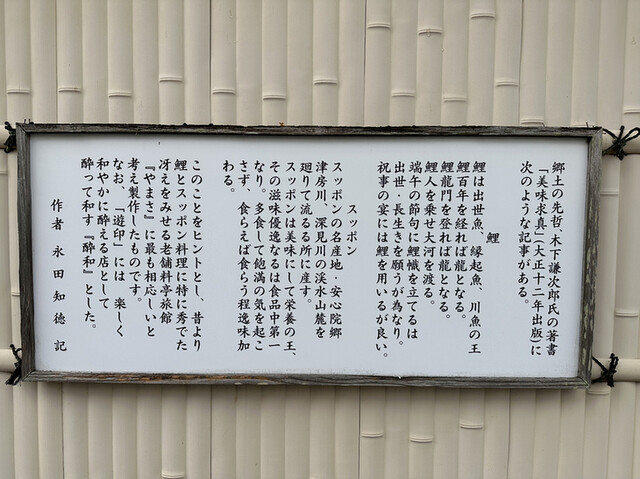 郷土の先哲、木下謙次郎氏の著書
「美味求真」(大正十二年出版)に
次のような記事がある。
鯉
鯉は出世魚、縁起魚、川魚の王
鯉百年を経れば龍となる。
鯉龍門を登れば龍となる。
鯉人を乗せ大河を渡る。
端午の節句に鯉幟を立てるは
出世・長生きを願うが為なり。
祝事の宴には鯉を用いるが良い。
スッポン
スッポンの名産地・安心院郷
津房川、深見川の渓水山麓を
廻りて流るる所に産す。
スッポンは美味にして栄養の王、
その滋味優逸なるは食品中第一
なり。多食して飽満の気を起こ
さず、食らえば食らう程逸味加
わる。
このことをヒントとし、昔より
鯉とスッポン料理に特に秀でた
冴えをみせる老舗料亭旅館
『やまさ』に最も相応しいと
考え製作したものです。
なお、「遊印」には、楽しく
和やかに酔える店として
酔って和す『酔和』とした。
作者 永田知徳 記